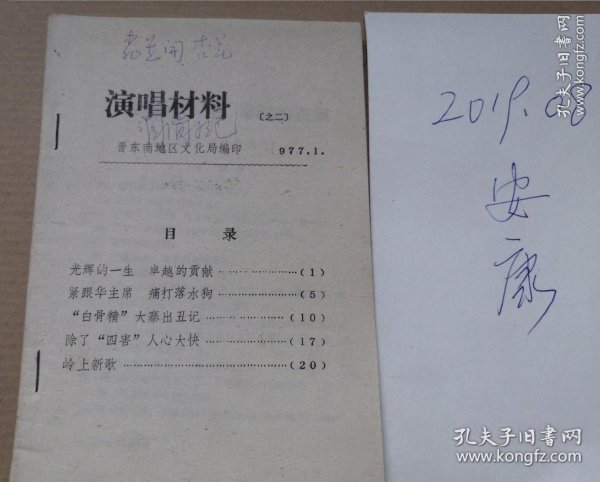 演唱材料
〔之二〕
晋东南地区文化局编印 977.1.
目 录
光辉的一生 卓越的贡献 ……………………(1)
紧跟华主席 痛打落水狗 ……………………(5)
“白骨精”大寨出丑记 ……………………(10)
除了“四害”人心大快 ……………………(17)
岭上新歌 ……………………(20)
2019.08
安
康
孔夫子旧书网
www.kongfz.com
孔夫子旧书网
www.kongfz.com